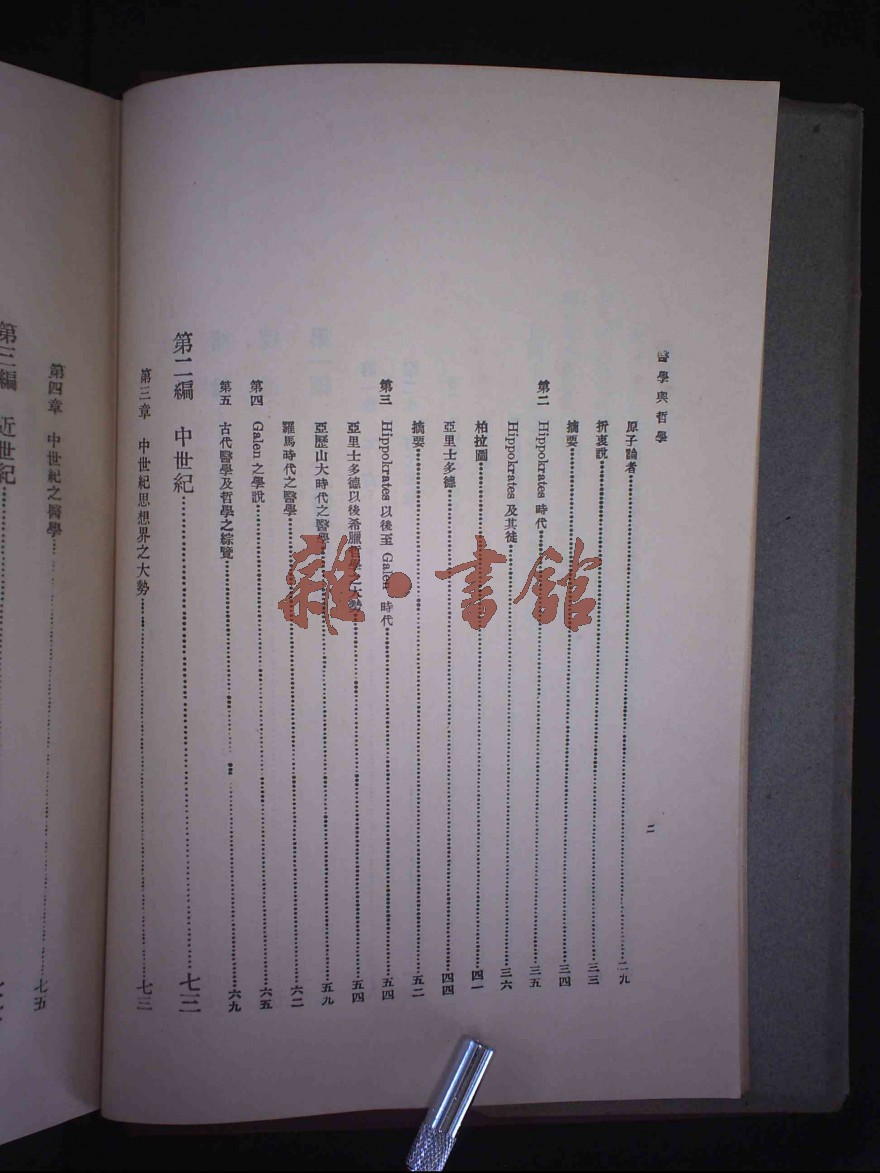 醫學與哲學
二
原子論者 二九
折衷說 三三
摘要 三四
第二 Hippokrates 時代 三五
Hippokrates 及其徒 三六
柏拉圖 四一
亞里士多德 四四
摘要 五二
第三 Hippokrates 以後至 Galen 時代 五四
亞里士多德以後希臘哲學之大勢 五四
亞歷山大時代之醫學 五九
羅馬時代之醫學 六二
第四 Galen 之學說 六五
第五 古代醫學及哲學之綜覽 六九
第二編 中世紀 七三
第三章 中世紀思想界之大勢 七三
第四章 中世紀之醫學 七五
第三編 近世紀
雜·書館